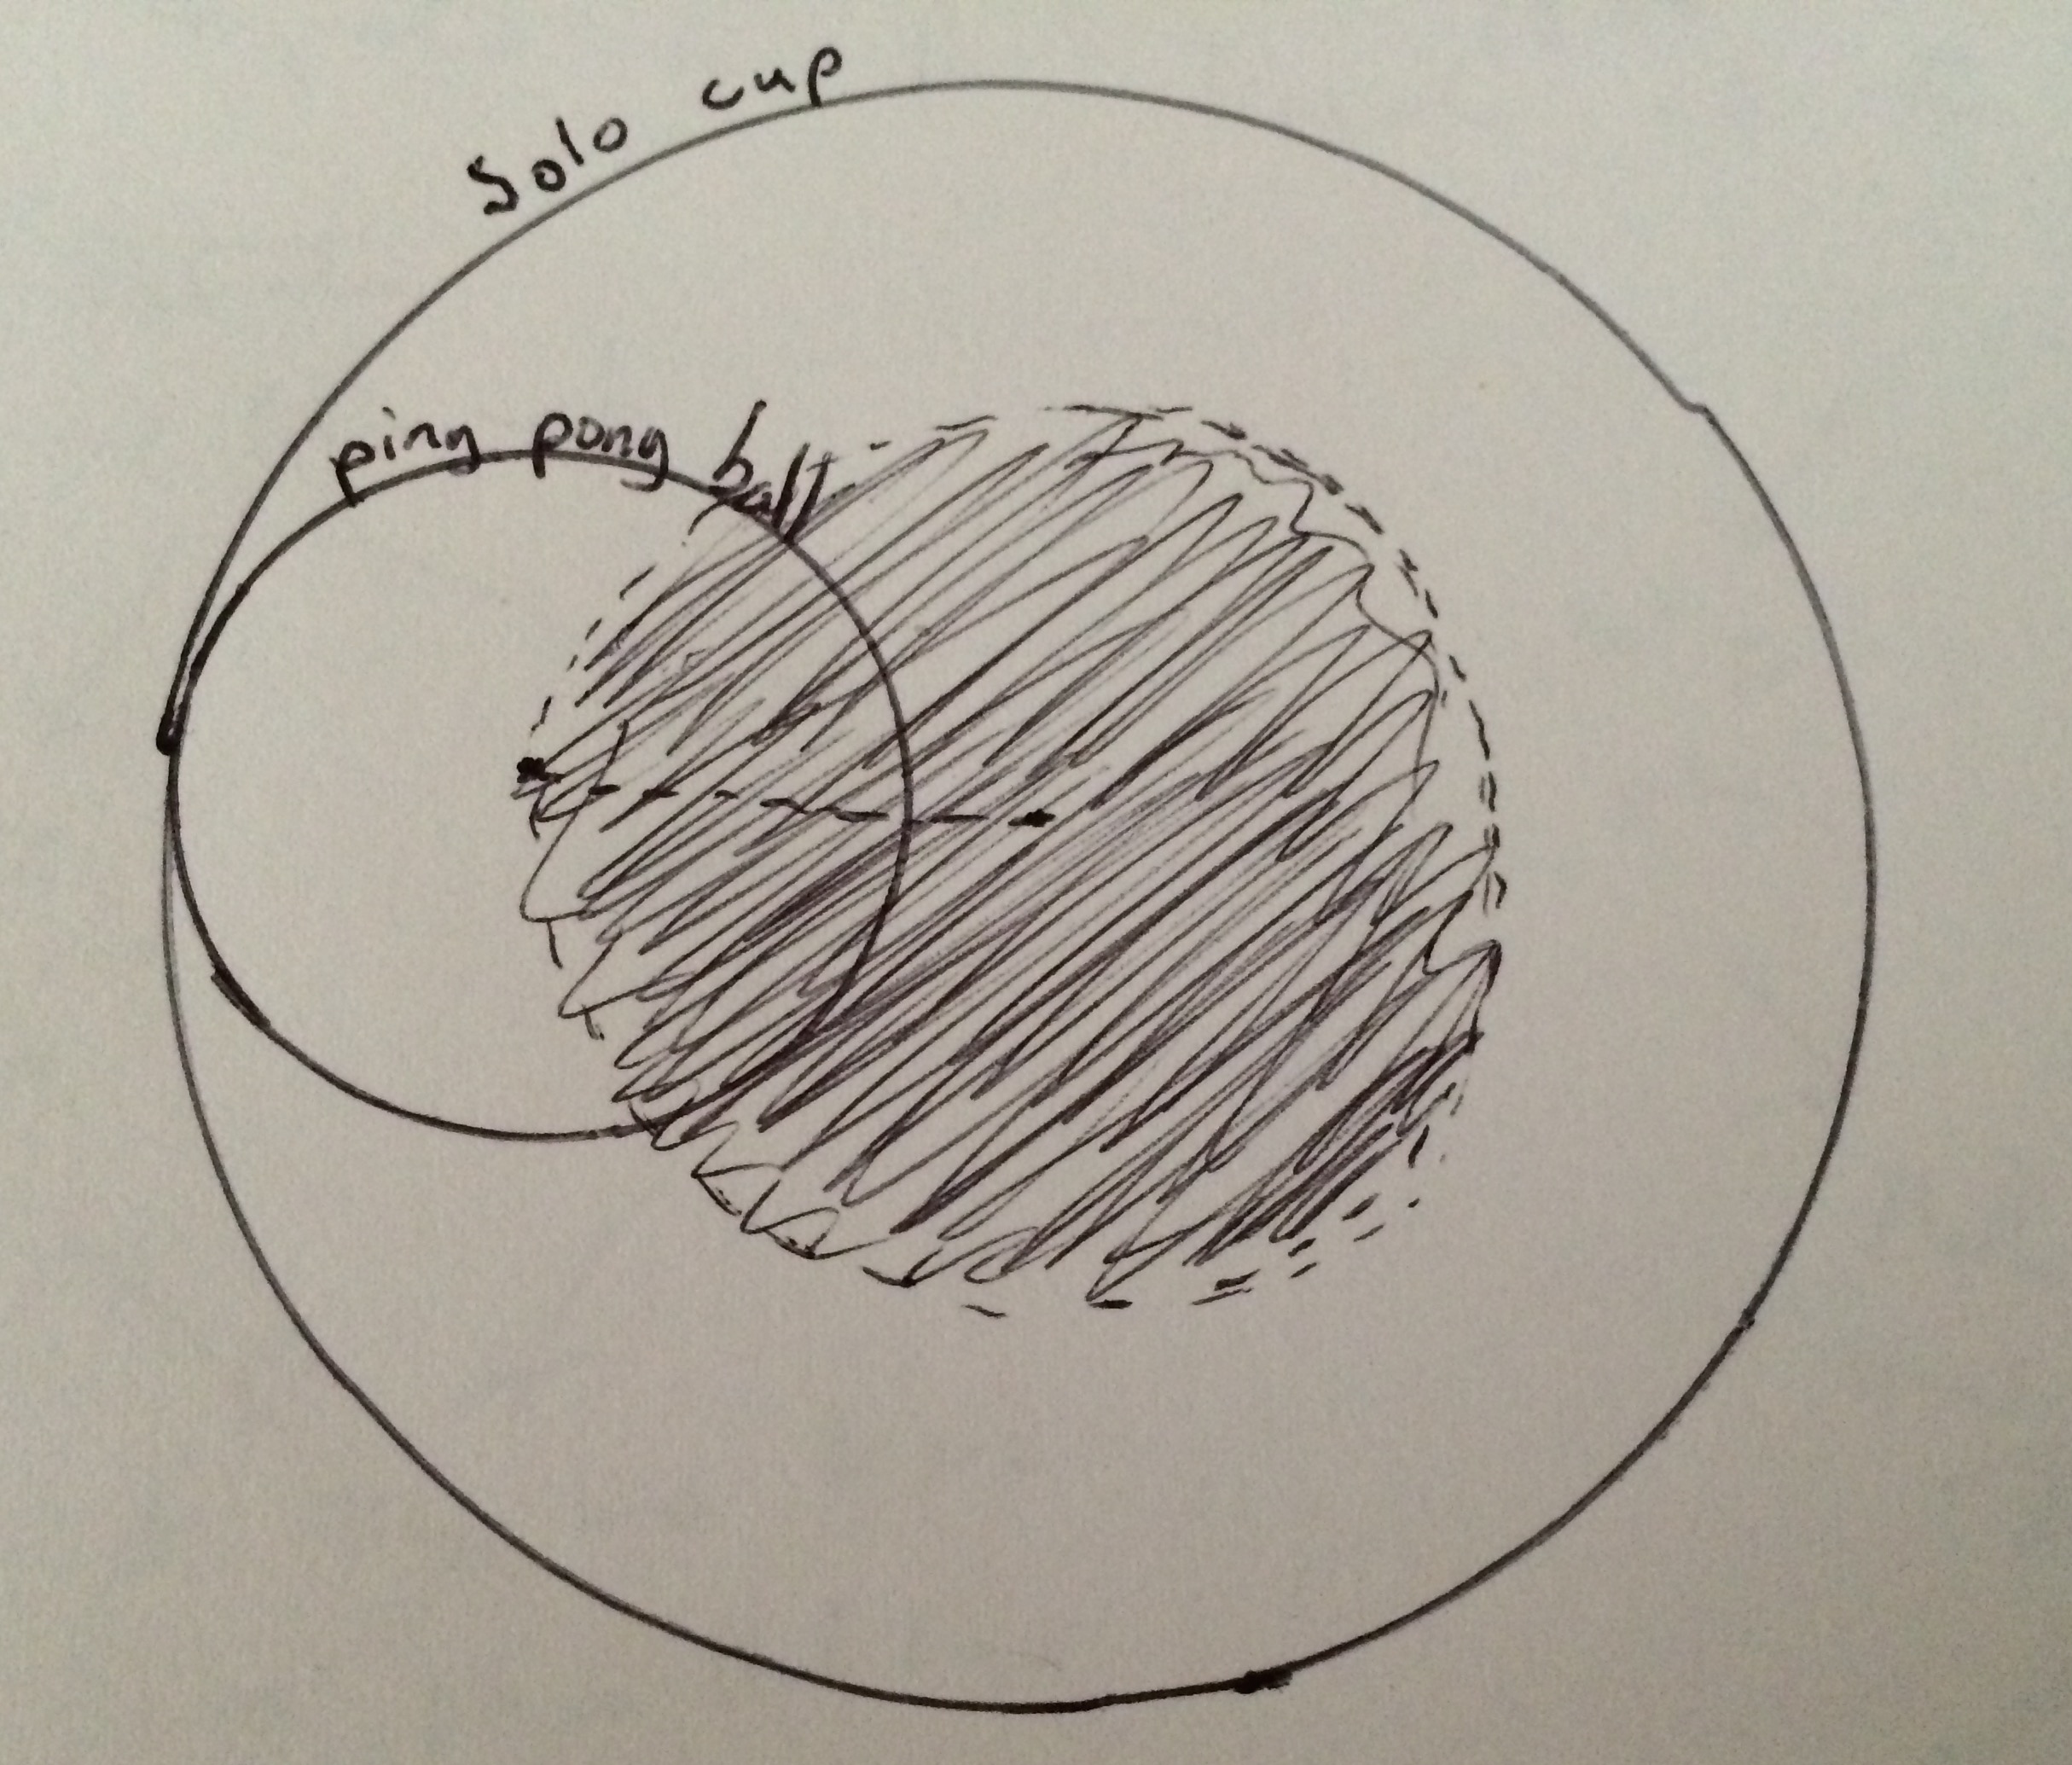 Solo cup
ping pong ball